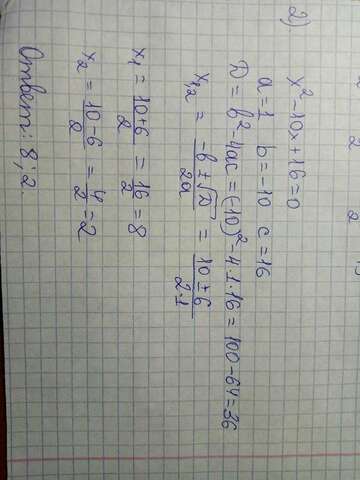 2)
x² - 10x + 16 = 0
a = 1 b = -10 c = 16
D = b² - 4ac = (-10)² - 4·1·16 = 100 - 64 = 36
x₁,₂ = (-b ± √D)/2a = (10 ± 6)/(2·1)
x₁ = (10 + 6)/2 = 16/2 = 8
x₂ = (10 - 6)/2 = 4/2 = 2
Ответ: 8; 2.